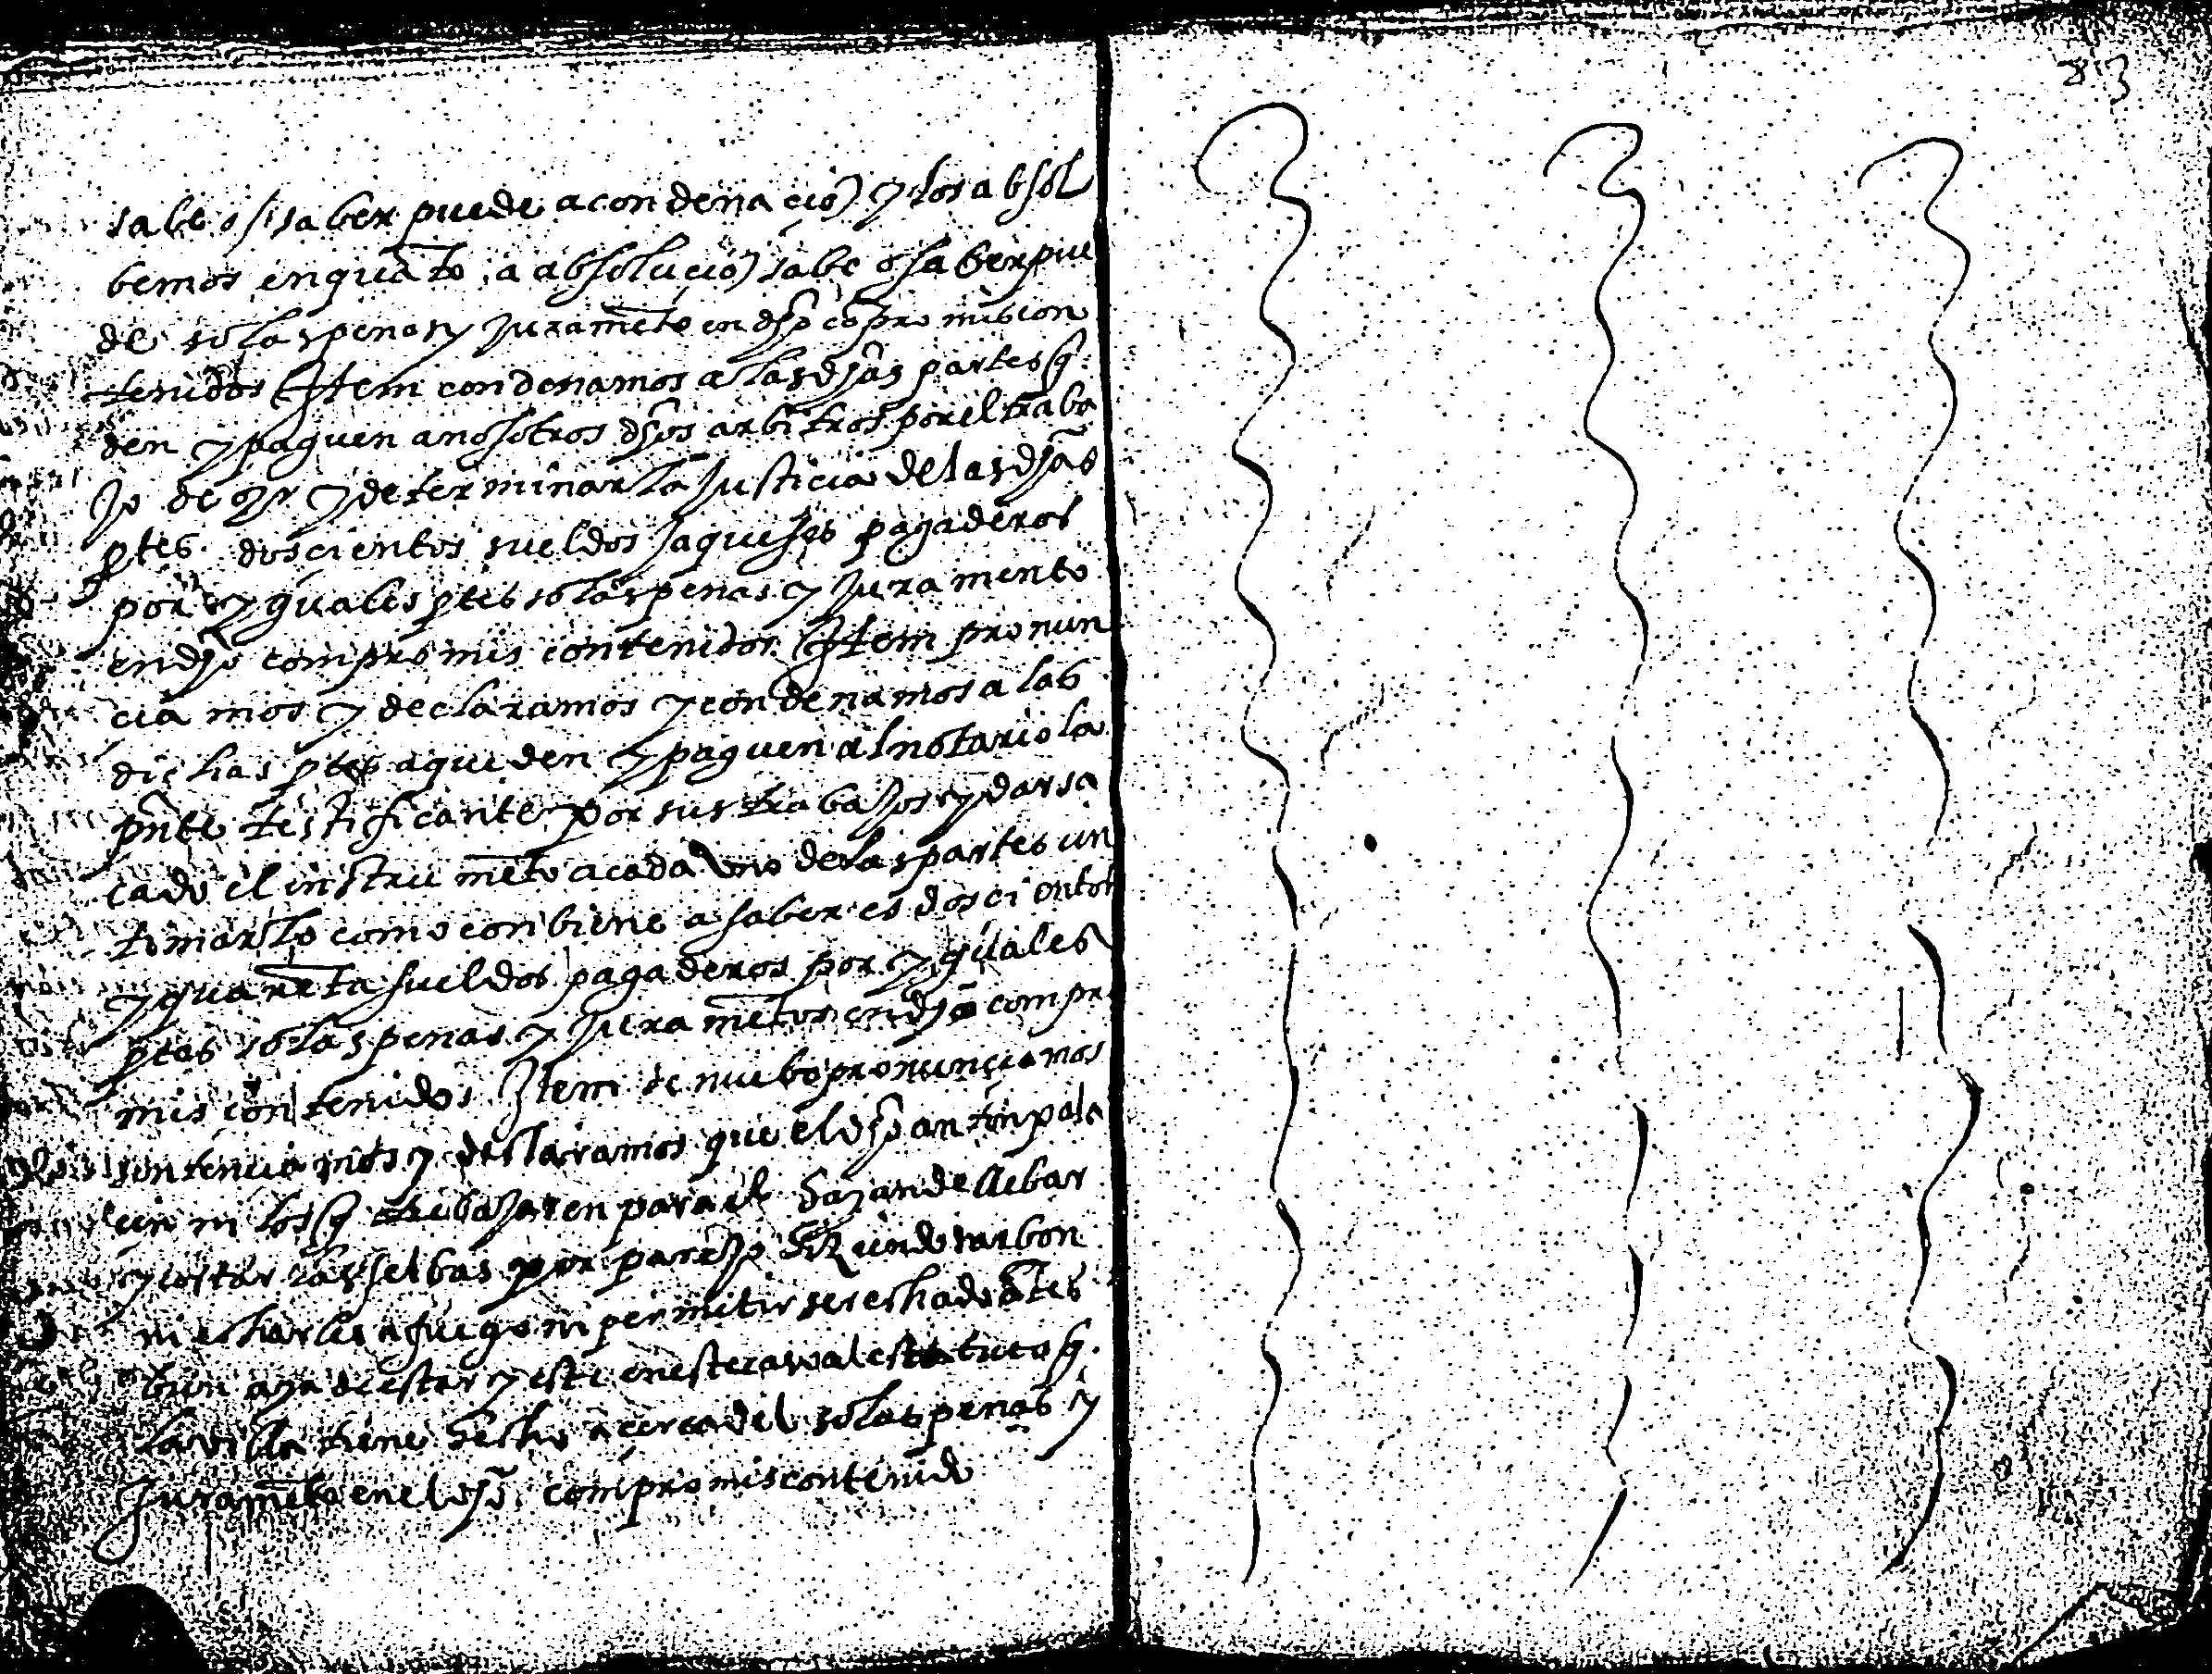 sabe o si saber puede a condenacio y los absol
bemos en quāto a absolucio sabe o saber pue
de so las penas y Juramēto en dho cōpromis con
tenidos Item condenamos a las dhas partes q̄
den y paguen a nosotros dhos arbitros por el traba
Jo de oyr y determinar la Justicia de las dhas
ptes doscientos sueldos Jaqueses pagaderos
por yguales ptes so las penas y Juramento
en dho compromis contenidos Item pronun
ciamos y declaramos y condenamos a las
dichas ptes a que den y paguen al notario la
pn̄te testificante por sus trabajos y dar sa
cado el instrumēto a cada uno de las partes un
como conbiene a saber es doscientos
y quarēta sueldos pagaderos por yguales
ptes so las penas y Juramētos en dho compro
mis contenidos Item de nuebo pronunciamos
sentenciamos y declaramos que el dho anton pala
cin ni los q̄ trabajaren para el hagan de
y cortar las selbas por parejo haziendo carbon
ni echarles a fuego ni permitir ser echado ātes
bien aya de estar y este en este caso al estatuto q̄
la villa tiene hecho acerca del so las penas y
Juramēto en el dho compromis contenido
83